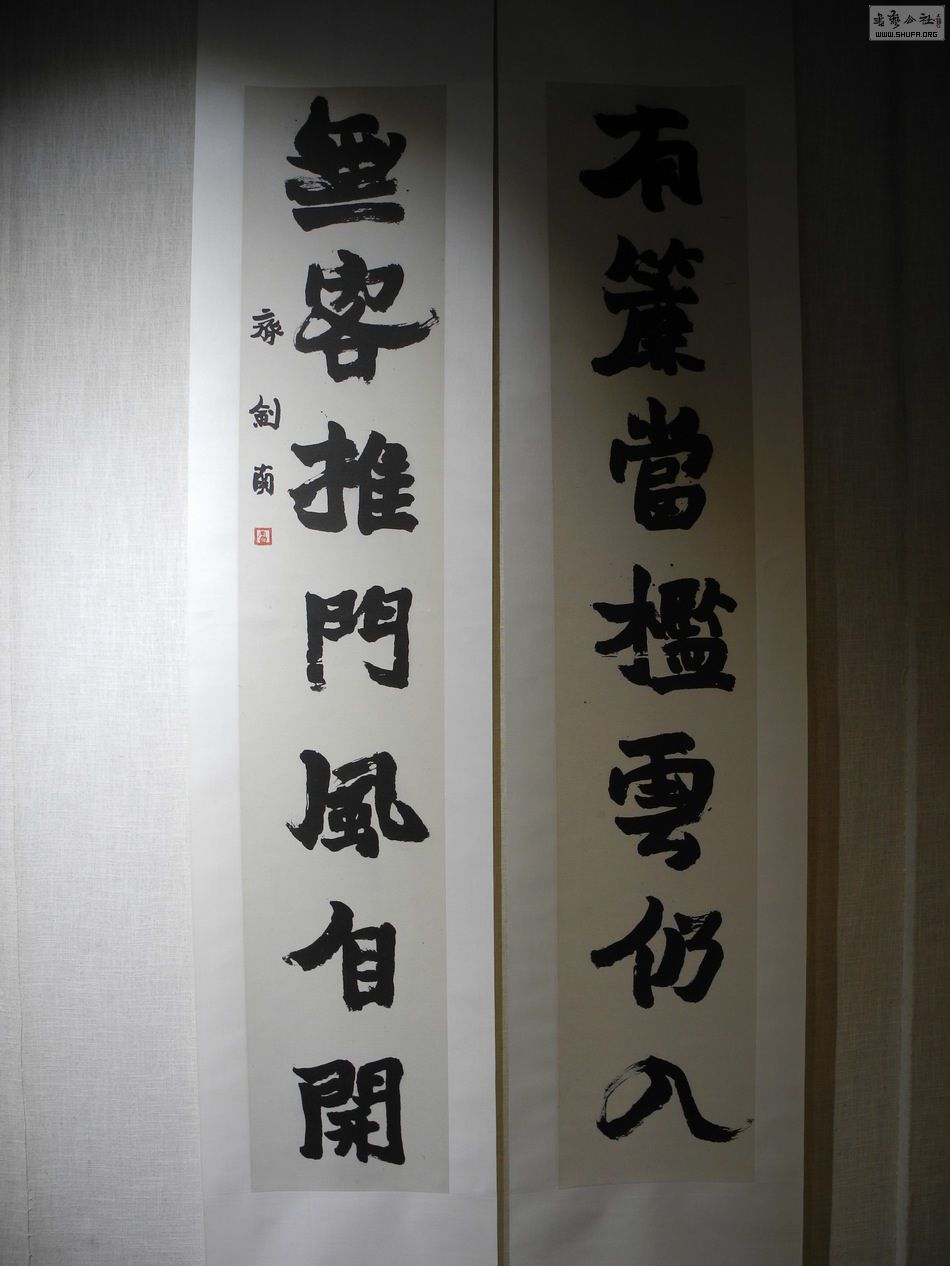 有簾當檻雲仍入
無客推門風自開
齊劍南
書藝公社
WWW.SHUFA.ORG